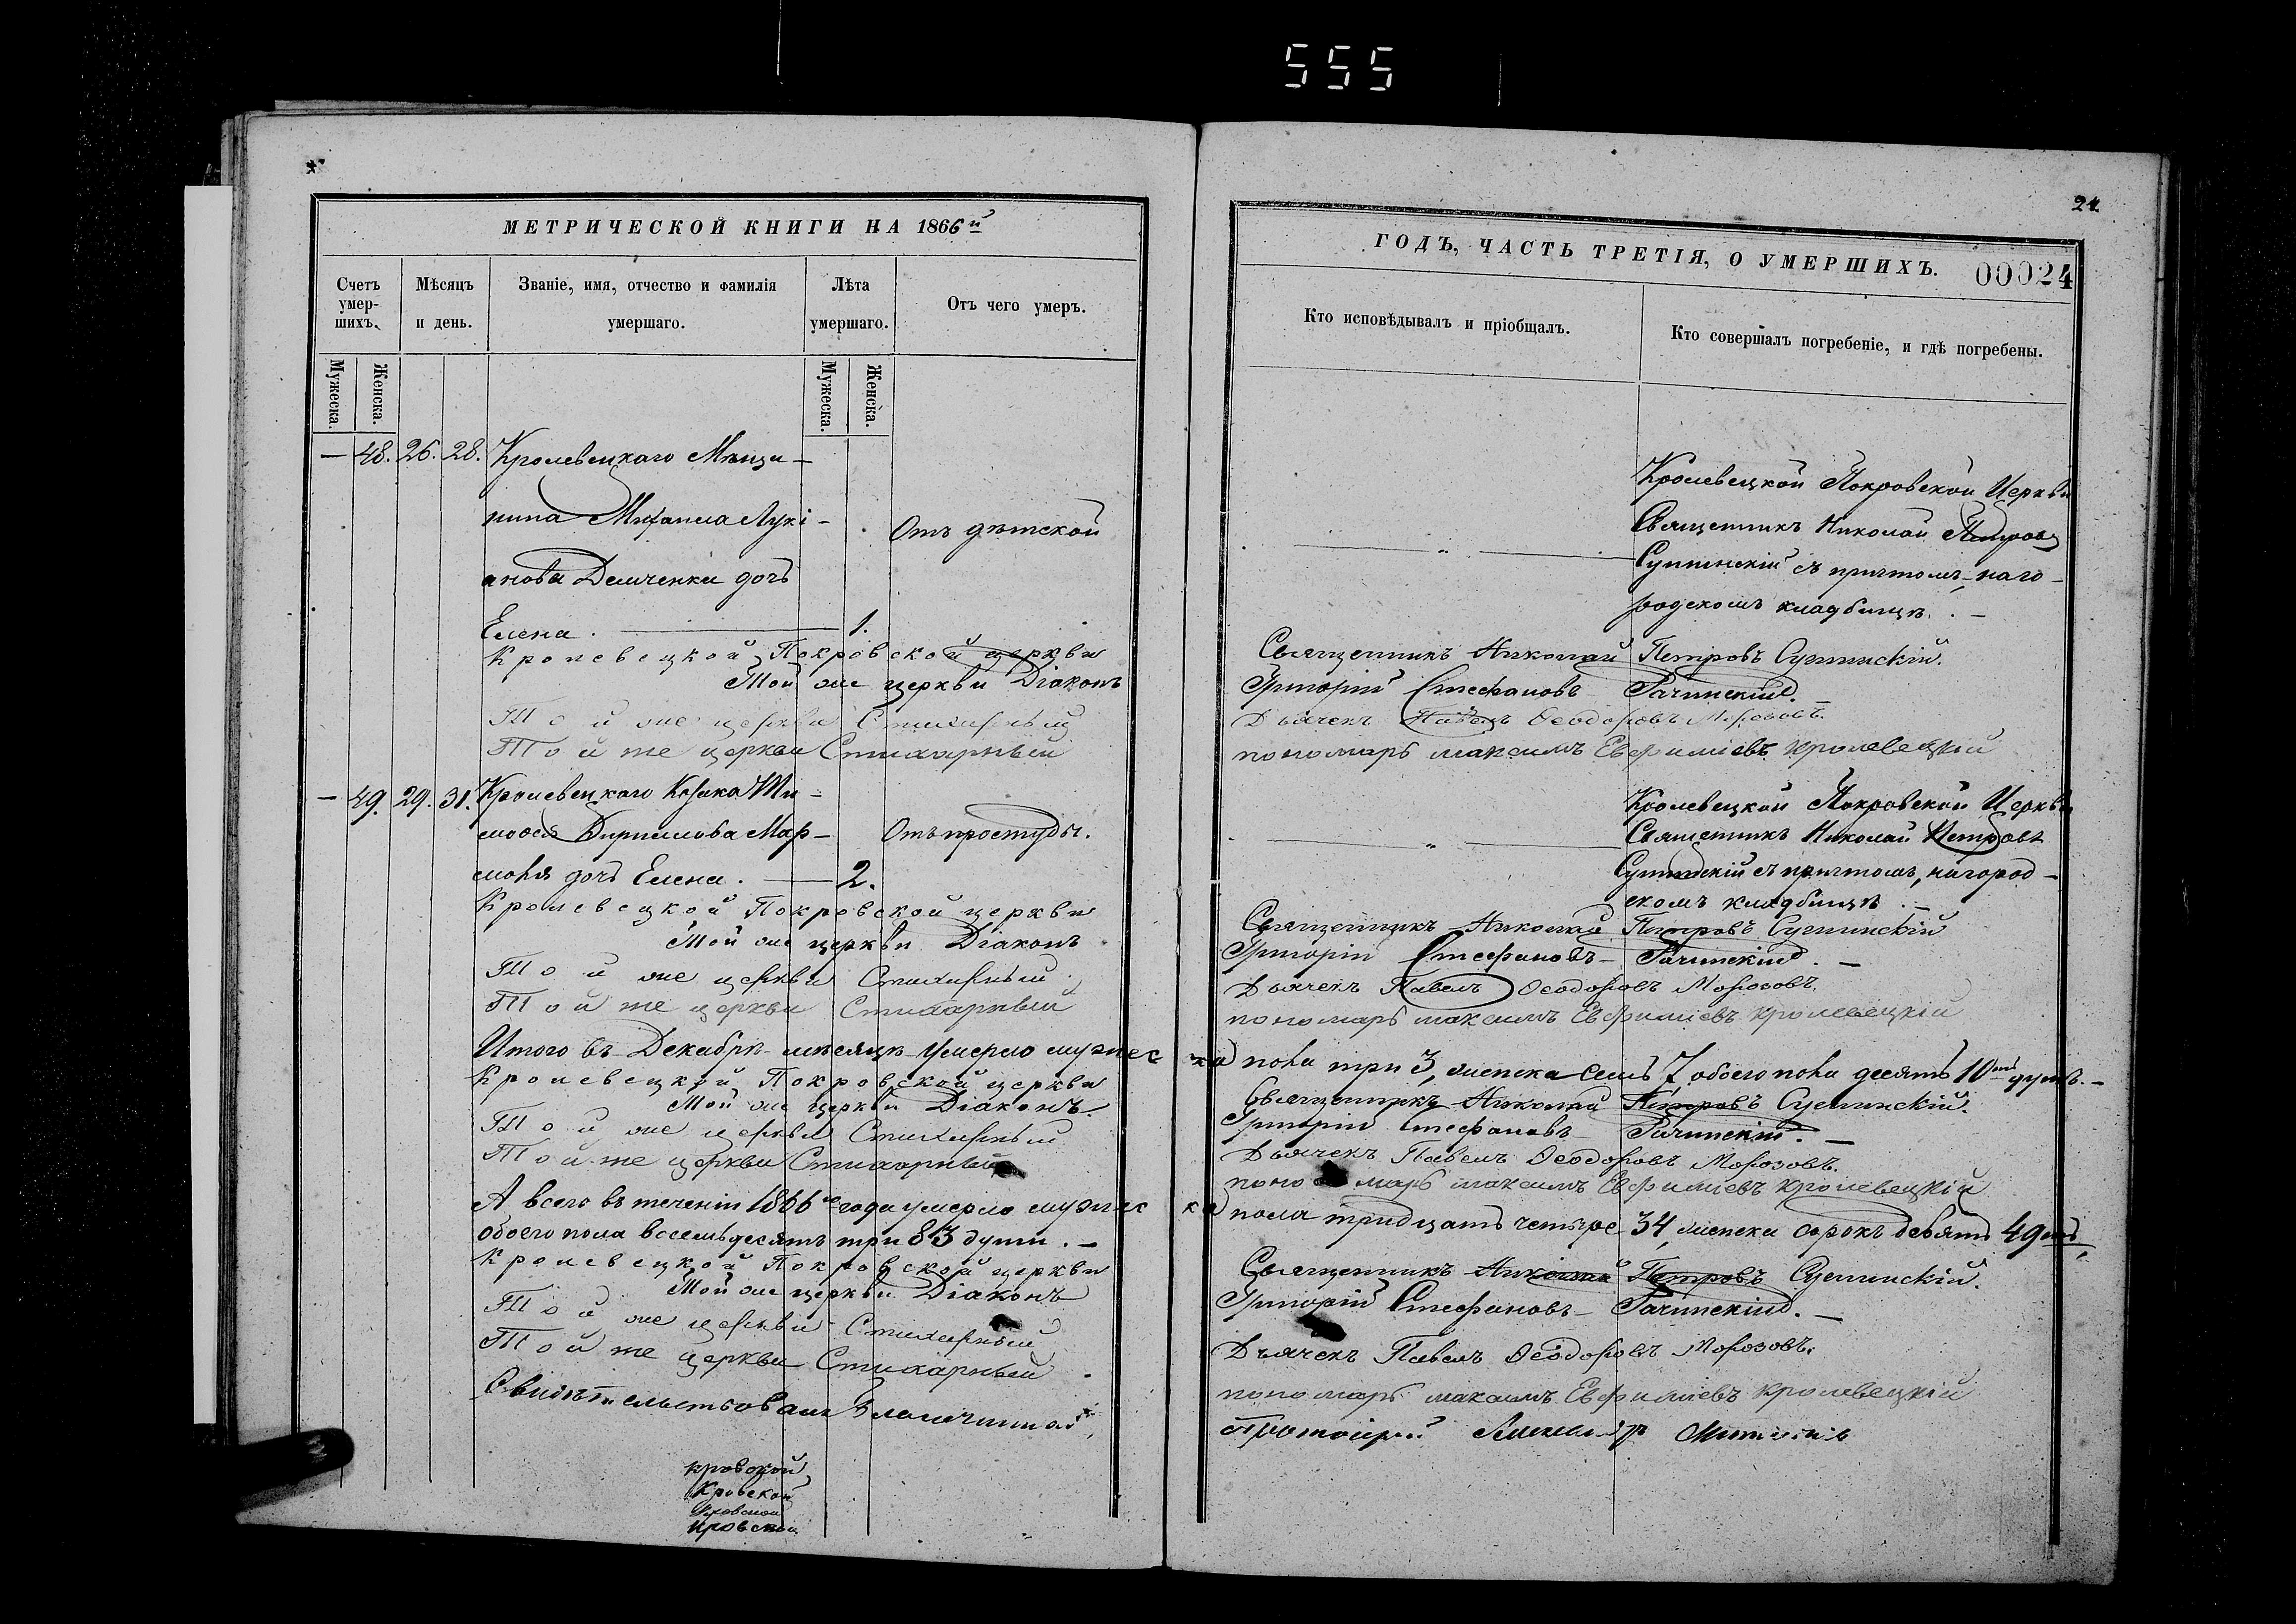 555
МЕТРИЧЕСКОЙ КНИГИ НА 1866й
Счетъ умер-шихъ.
Мѣсяцъ и день.
Званіе, имя, отчество и фамилія умершаго.
Лѣта умершаго.
Отъ чего умеръ.
Мужеска.
Женска.
Мужеска.
Женска.
— 48. 26. 28. Кролевецкаго Мѣща-
нина Михаила Лукі-
анова Демченка дочь
Елена. — 1.
Отъ дѣтской
Кролевецкой Покровской церкви
Той же церкви Діаконъ
Той же церкви Стихарный
Той же церкви Стихарный
— 49. 29. 31. Кролевецкаго Козака Ти-
моѳея Кириллова Мар-
дочь Елена. — 2.
Отъ простуды.
Кролевецкой Покровской церкви
Той же церкви Діаконъ
Той же церкви Стихарный
Той же церкви Стихарный
Итого въ Декабрѣ мѣсяцѣ умерло мужес
Кролевецкой Покровской церкви
Той же церкви Діаконъ
Той же церкви Стихарный
Той же церкви Стихарный
А всего въ теченіи 1866го года умерло мужес
обоего пола восемьдесятъ три 83 души. —
Кролевецкой Покровской церкви
Той же церкви Діаконъ
Той же церкви Стихарный
Той же церкви Стихарный
Свидѣтельствовалъ Благочинный,
кровской
Кровской
кровской
кровской
24
ГОДЪ, ЧАСТЬ ТРЕТІЯ, О УМЕРШИХЪ. 00024
Кто исповѣдывалъ и пріобщалъ.
Кто совершалъ погребеніе, и гдѣ погребены.
Кролевецкой Покровской Церкви
Священникъ Николай Петровъ
съ причтомъ, на го-
родскомъ кладбищѣ. —
Священникъ Николай Петровъ
Григорій Стефановъ Рачинскій. —
Дьячекъ Павелъ Ѳеодоровъ Морозовъ.
пономарь максимъ Евфиміевъ кролевецкій
Кролевецкой Покровской Церкви
Священникъ Николай Петровъ
съ причтомъ, на город-
скомъ кладбищѣ. —
Священникъ Николай Петровъ
Григорій Стефановъ Рачинскій. —
Дьячекъ Павелъ Ѳеодоровъ Морозовъ.
пономарь максимъ Евфиміевъ кролевецкій
ка пола три 3, женска семь 7, обоего пола десять 10ть душъ. —
Священникъ Николай Петровъ
Григорій Стефановъ Рачинскій. —
Дьячекъ Павелъ Ѳеодоровъ Морозовъ.
пономарь максимъ Евфиміевъ кролевецкій
ка пола тридцать четыре 34, женска сорокъ девять 49ть,
Священникъ Николай Петровъ
Григорій Стефановъ Рачинскій. —
Дьячекъ Павелъ Ѳеодоровъ Морозовъ.
пономарь максимъ Евфиміевъ кролевецкій
Протоіерей Александръ